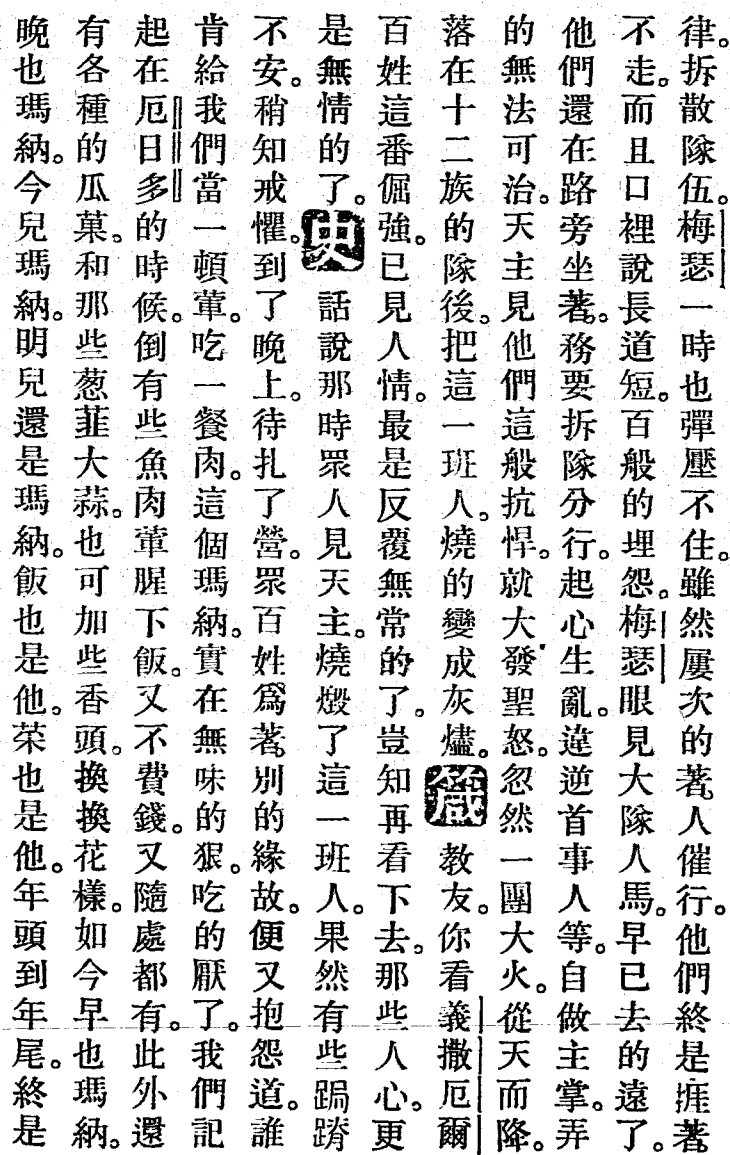 律。拆散隊伍。梅瑟一時也彈壓不住。雖然屢次的著人催行。他們終是捱著
不走。而且口裡說長道短。百般的埋怨。梅瑟眼見大隊人馬。早已去的遠了。
他們還在路旁坐著。務要拆隊分行。起心生亂。違逆首事人等。自做主掌。弄
的無法可治。天主見他們這般抗悍。就大發聖怒。忽然一團大火。從天而降。
落在十二族的隊後。把這一班人。燒的變成灰燼。箴教友。你看義撒厄爾
百姓這番倔強。已見人情。最是反覆無常的了。豈知再看下去。那些人心。更
是無情的了。史話說那時眾人見天主。燒燬了這一班人。果然有些跼蹐
不安。稍知戒懼。到了晚上。待扎了營。眾百姓爲著別的緣故。便又抱怨道。誰
肯給我們當一頓葷。吃一餐肉。這個瑪納。實在無味的狠。吃的厭了。我們記
起在厄日多的時候。倒有些魚肉葷腥下飯。又不費錢。又隨處都有。此外還
有各種的瓜菓。和那些葱韮大蒜。也可加些香頭。換換花樣。如今早也瑪納。
晚也瑪納。今兒瑪納。明兒還是瑪納。飯也是他。菜也是他。年頭到年尾。終是